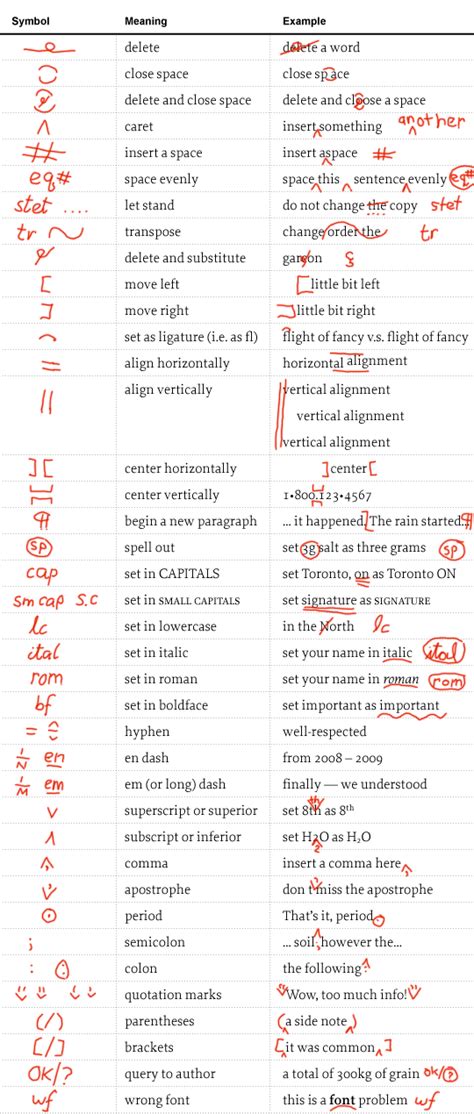 Symbol Meaning Example
delete delete a word
close space close space
delete and close space delete and cloose a space
caret insert something another
# insert a space insert aspace #
eq# space evenly space this sentence evenly eq#
stet .... let stand do not change the copy stet
tr transpose change order the tr
delete and substitute garson ç
[ move left [ little bit left
] move right ] little bit right
set as ligature (i.e. as fl) flight of fancy v.s. flight of fancy
= align horizontally horizontal alignment
|| align vertically vertical alignment
vertical alignment
vertical alignment
] [ center horizontally ] center [
center vertically 1•800.123•4567
¶ begin a new paragraph ... it happened. The rain started. ¶
sp spell out set 3g salt as three grams sp
cap set in CAPITALS set Toronto, on as Toronto ON
sm cap s.c set in SMALL CAPITALS set signature as SIGNATURE
lc set in lowercase in the North lc
ital set in italic set your name in italic ital
rom set in roman set your name in roman rom
bf set in boldface set important as important
= hyphen well-respected
1/N en en dash from 2008 – 2009
1/M em em (or long) dash finally — we understood
superscript or superior set 8th as 8th
subscript or inferior set H2O as H₂O
, comma insert a comma here,
' apostrophe don't miss the apostrophe
. period That's it, period.
; semicolon ... soil; however the...
: colon the following:
" " ' ' quotation marks "Wow, too much info!"
(/) parentheses (a side note)
[/] brackets [it was common]
OK/? query to author a total of 300kg of grain ok/?
wf wrong font this is a font problem wf